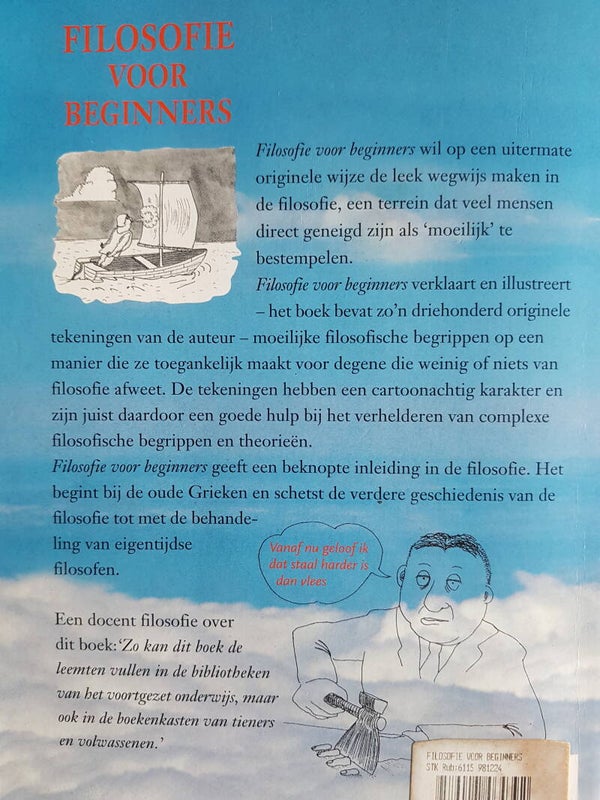 FILOSOFIE
VOOR
BEGINNERS
Filosofie voor beginners wil op een uitermate
originele wijze de leek wegwijs maken in
de filosofie, een terrein dat veel mensen
direct geneigd zijn als ‘moeilijk’ te
bestempelen.
Filosofie voor beginners verklaart en illustreert
– het boek bevat zo’n driehonderd originele
tekeningen van de auteur – moeilijke filosofische begrippen op een
manier die ze toegankelijk maakt voor degene die weinig of niets van
filosofie afweet. De tekeningen hebben een cartoonachtig karakter en
zijn juist daardoor een goede hulp bij het verhelderen van complexe
filosofische begrippen en theorieën.
Filosofie voor beginners geeft een beknopte inleiding in de filosofie. Het
begint bij de oude Grieken en schetst de verdere geschiedenis van de
filosofie tot met de behande-
ling van eigentijdse
filosofen.
Vanaf nu geloof ik
dat staal harder is
dan vlees
Een docent filosofie over
dit boek: ‘Zo kan dit boek de
leemten vullen in de bibliotheken
van het voortgezet onderwijs, maar
ook in de boekenkasten van tieners
en volwassenen.’
FILOSOFIE VOOR BEGINNERS
STK Rub:6115 981224